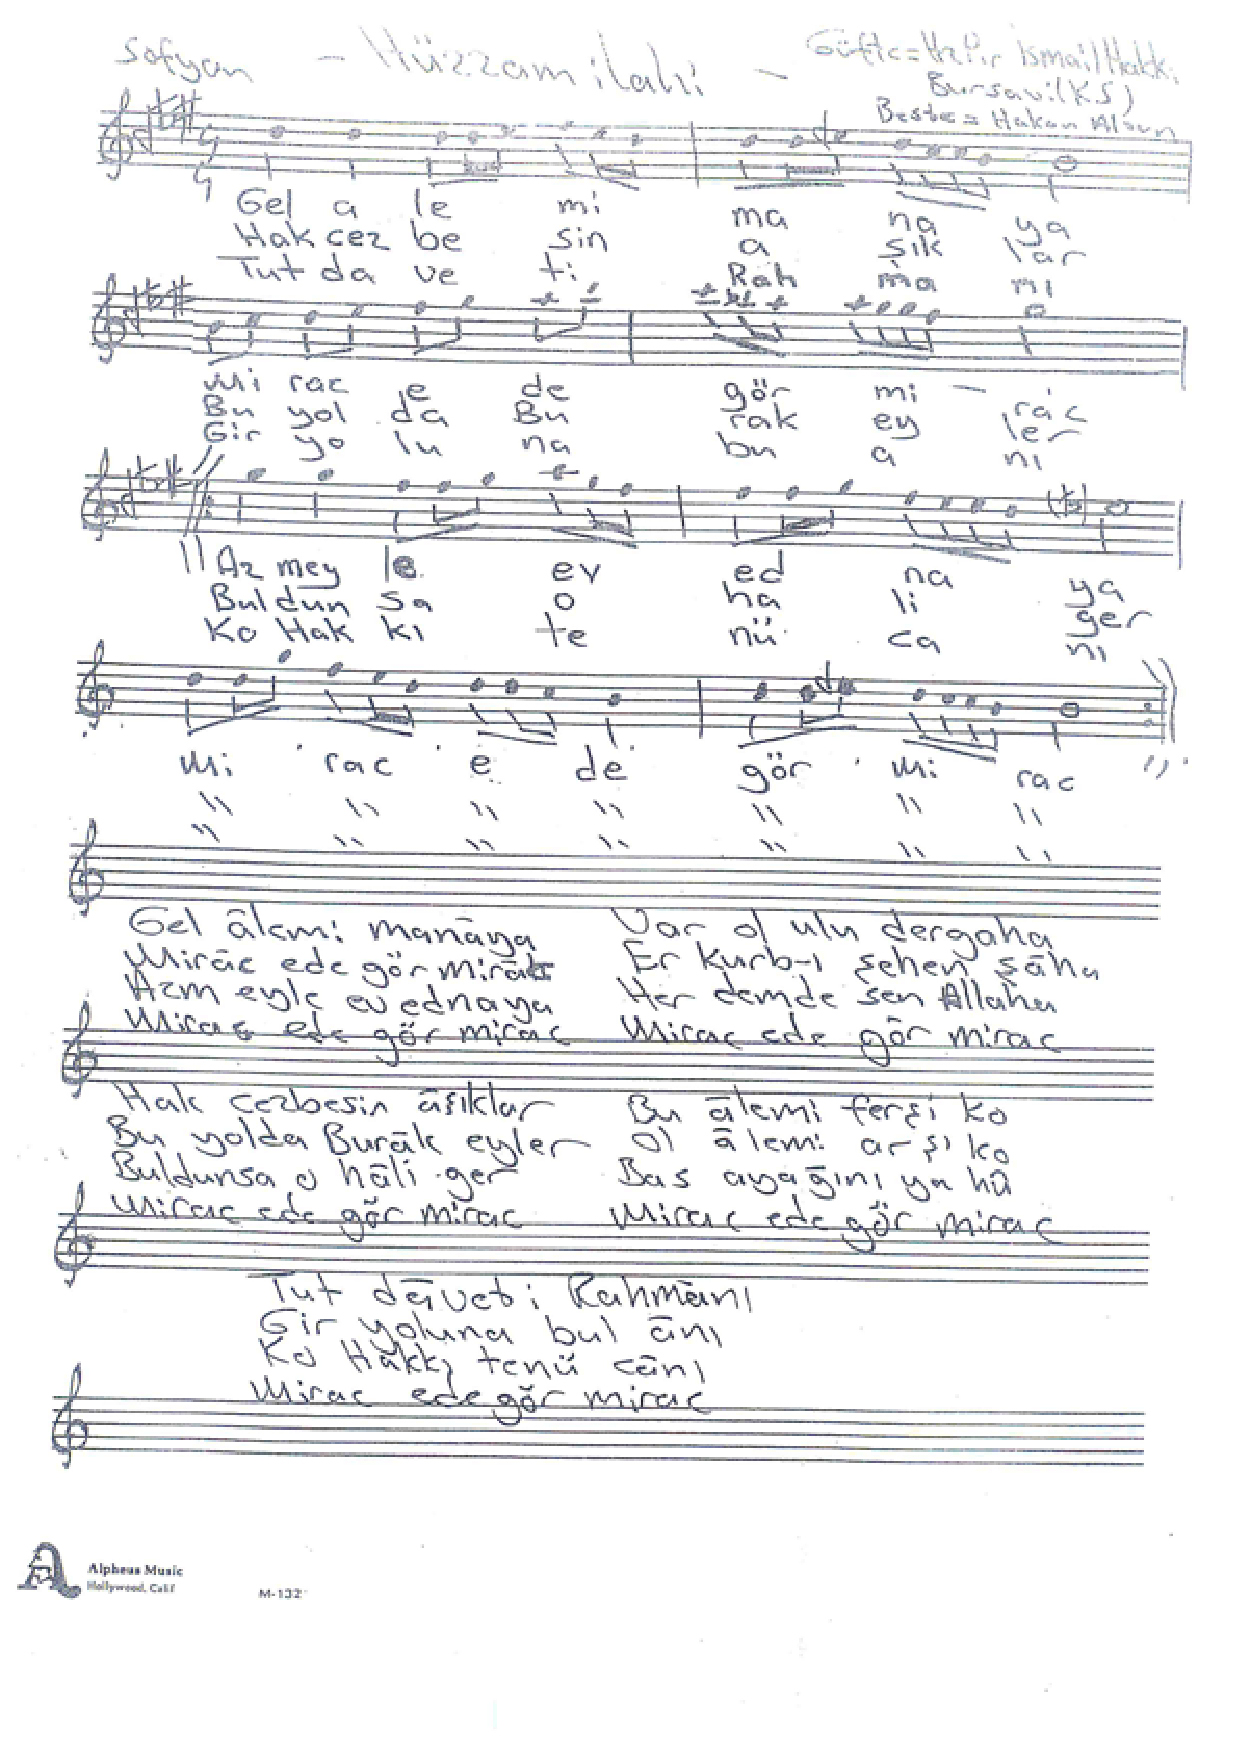 Sofyan - Hüzzam ilahi - Güfte=Hz Pir İsmail Hakkı
Bursavi(KS)
Beste= Hakan
Gel a le mi ma na ya
Hak cez be sin a şık lar
Tut da ve ti Rah ma nı
Mi rac e de gör mi - rac
Bu yol da Bu rak ey ler
Gir yo lu na bu a nı
Az mey le ev ed na ya
Bul dun sa o ha li ger
Ko Hak kı te nü ca nı
Mi rac e de gör mi rac
" " " " " " "
" " " " " " "
Gel âlemi manāya Var ol ulu dergaha
Mirāc ede gör mirāc Er kurb-ı şehen şāha
Azm eyle ev ednaya Her demde sen Allaha
Mirac ede gör mirac Mirac ede gör mirac
Hak cezbesin āşıklar Bu ālemi ferşi ko
Bu yolda Burāk eyler Ol ālemi arşı ko
Buldunsa o hāli ger Bas ayağını ya hū
Mirac ede gör mirac Mirac ede gör mirac
Tut dāveti Rahmānı
Gir yoluna bul ānı
Ko Hākkı tenü cānı
Mirac ede gör mirac
Alpheus Music
Hollywood, Calif
M-132